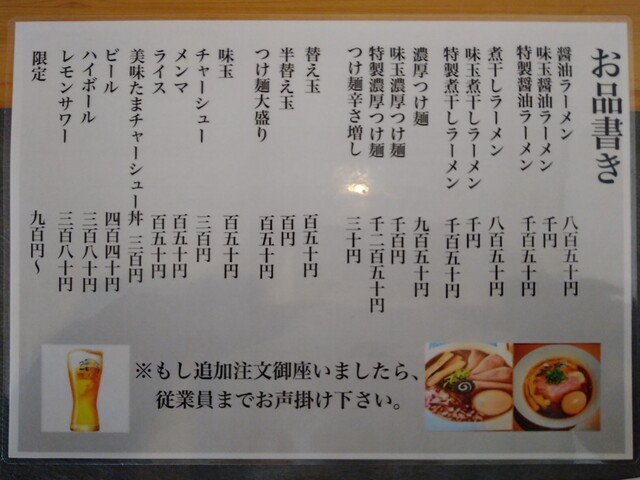 お品書き
醤油ラーメン 八百五十円
味玉醤油ラーメン 千円
特製醤油ラーメン 千百五十円
煮干しラーメン 八百五十円
味玉煮干しラーメン 千円
特製煮干しラーメン 千百五十円
濃厚つけ麺 九百五十円
味玉濃厚つけ麺 千百円
特製濃厚つけ麺 千二百五十円
つけ麺辛さ増し 三十円
替え玉 百五十円
半替え玉 百円
つけ麺大盛り 百五十円
味玉 百五十円
チャーシュー 三百円
メンマ 百五十円
ライス 百五十円
美味たまチャーシュー丼 三百円
ビール 四百四十円
ハイボール 三百八十円
レモンサワー 三百八十円
限定 九百円〜
※もし追加注文御座いましたら、
従業員までお声掛け下さい。